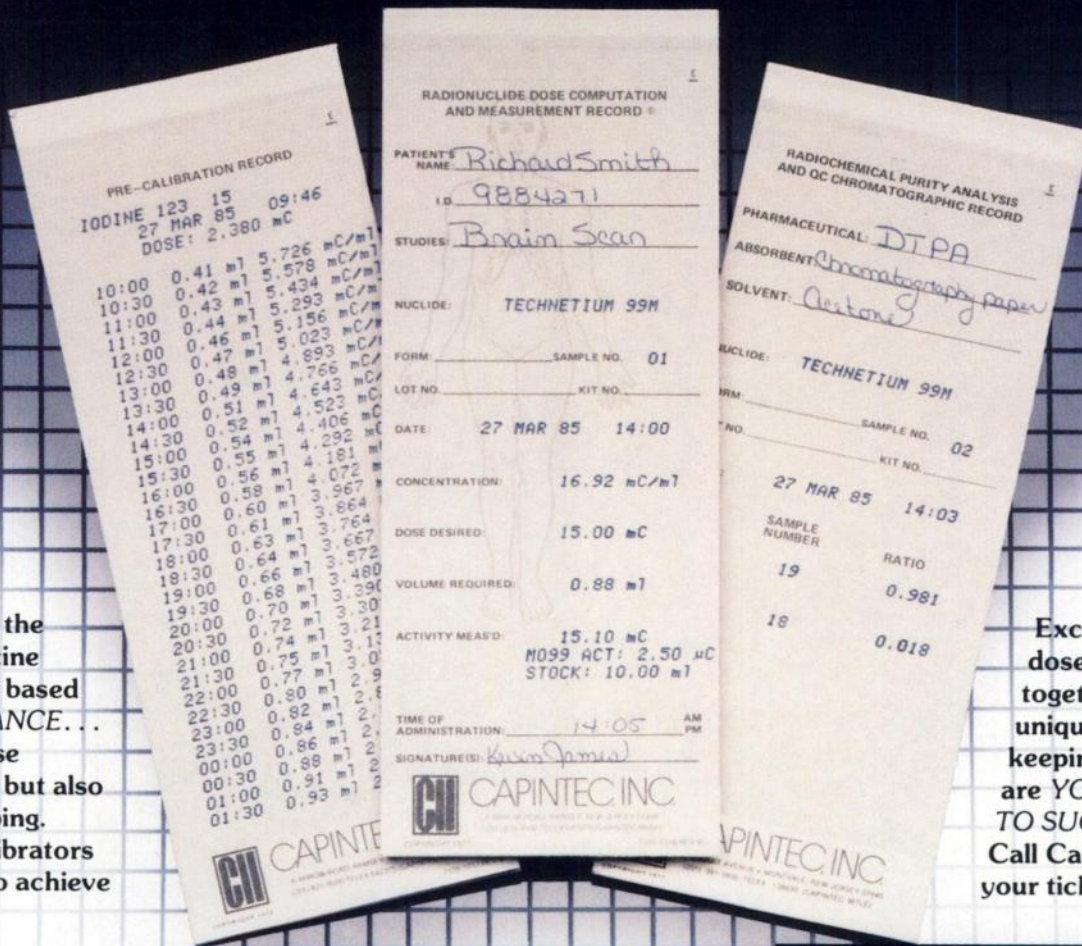 PRE-CALIBRATION RECORD
IODINE 123 15
27 MAR 85 09:46
DOSE: 2.380 mC
10:00 0.41 ml 5.726 mC/ml
10:30 0.42 ml 5.578 mC/ml
11:00 0.43 ml 5.434 mC/m
11:30 0.44 ml 5.293 mC/m
12:00 0.46 ml 5.156 mC/
12:30 0.47 ml 5.023 mC/
13:00 0.48 ml 4.893 mC/
13:30 0.49 ml 4.766 mC/
14:00 0.51 ml 4.643 mC
14:30 0.52 ml 4.523 mC
15:00 0.54 ml 4.406 mC
15:30 0.55 ml 4.292 mC
16:00 0.56 ml 4.181 m
16:30 0.58 ml 4.072 m
17:00 0.60 ml 3.967 m
17:30 0.61 ml 3.864
18:00 0.63 ml 3.764
18:30 0.64 ml 3.667
19:00 0.66 ml 3.572
19:30 0.68 ml 3.480
20:00 0.70 ml 3.390
20:30 0.72 ml 3.30
21:00 0.74 ml 3.21
21:30 0.75 ml 3.13
22:00 0.77 ml 3.0
22:30 0.80 ml 2.9
23:00 0.82 ml 2.8
23:30 0.84 ml 2.
00:00 0.86 ml 2
00:30 0.88 ml 2
01:00 0.91 ml 2
01:30 0.93 ml 2
CII CAPINTE
RADIONUCLIDE DOSE COMPUTATION
AND MEASUREMENT RECORD ©
PATIENT'S NAME: Richard Smith
I.D 9884271
STUDIES: Brain Scan
NUCLIDE: TECHNETIUM 99M
FORM: SAMPLE NO. 01
LOT NO. KIT NO.
DATE: 27 MAR 85 14:00
CONCENTRATION: 16.92 mC/ml
DOSE DESIRED: 15.00 mC
VOLUME REQUIRED: 0.88 ml
ACTIVITY MEAS'D: 15.10 mC
MO99 ACT: 2.50 µC
STOCK: 10.00 ml
TIME OF
ADMINISTRATION: 14:05 AM PM
SIGNATURE(S): Kevin James
CII CAPINTEC INC.
RADIOCHEMICAL PURITY ANALYSIS
AND QC CHROMATOGRAPHIC RECORD
PHARMACEUTICAL: DTPA
ABSORBENT: Chromatography paper
SOLVENT: Acetone
UCLIDE: TECHNETIUM 99M
RM: SAMPLE NO. 02
NO. KIT NO.
27 MAR 85 14:03
SAMPLE
NUMBER RATIO
19 0.981
18 0.018
APINTEC INC
the
cine
based
ANCE...
se
but also
ping.
ibrators
o achieve
Exc
dose
togeth
uniqu
keepin
are YO
TO SUC
Call Ca
your tick